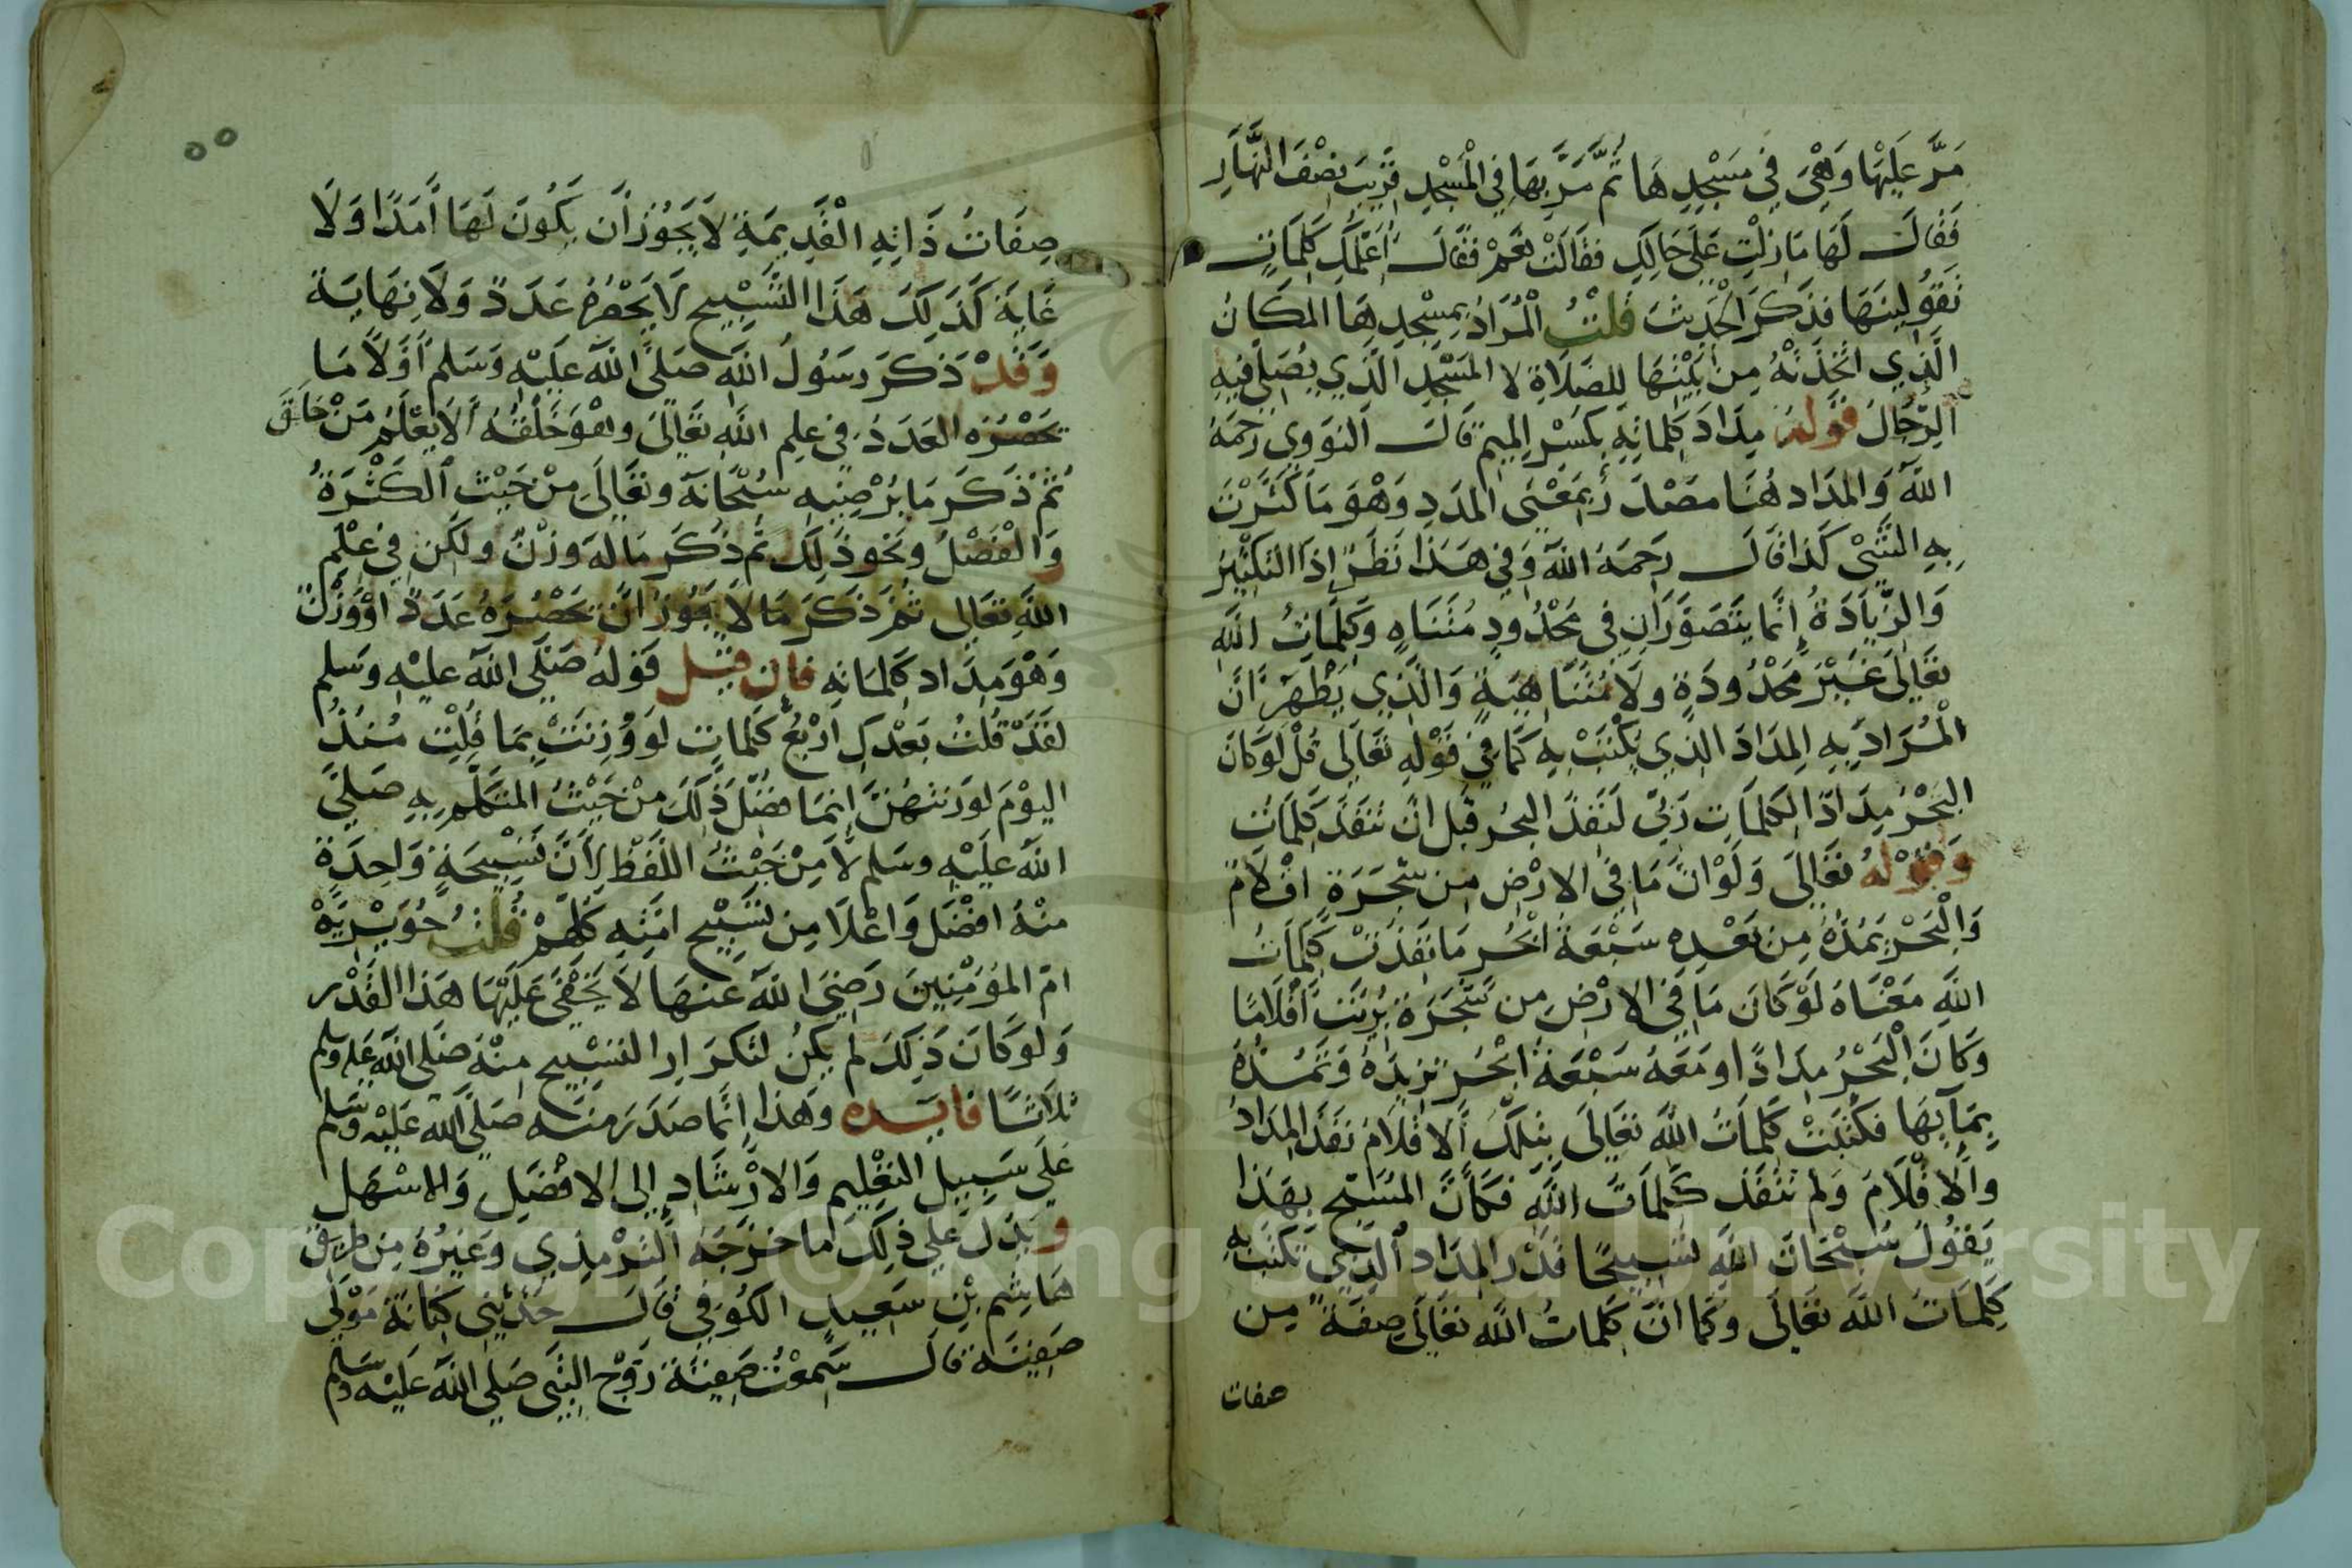 مَرَّ عَلَيْهَا وَهْيَ فِي مَسْجِدِهَا ثُمَّ مَرَّ بِهَا فِي الْمَسْجِدِ قَرِيبَ نِصْفَ النَّهَارِ
فَقَالَ لَهَا مَا زِلْتِ عَلَى حَالِكِ فَقَالَتْ نَعَمْ فَقَالَ أُعَلِّمُكِ كَلِمَاتٍ
تَقُولِينَهَا فَذَكَرَ الْحَدِيثَ قُلْتُ الْمُرَادُ بِمَسْجِدِهَا المَكَانُ
الَّذِي اتَّخَذَتْهُ مِنْ بَيْتِهَا لِلصَّلَاةِ لا المَسْجِدِ الَّذِي يُصَلِّي فِيهِ
الرِّجَالُ قَولُهُ مِدَادَ كَلِمَاتِهِ بِكَسْرِ المِيمِ قَالَ النَوَوِي رَحِمَهُ
اللهُ وَالمِدَاد هُنَا مَصْدَرٌ بِمَعْنَى المَدَدِ وَهْوَ مَا كَثَّرْتَ
بِهِ الشَّيْئ كَذَا قَالَ رَحِمَهُ اللهُ وَفِي هَذَا نَظَرٌ إِذَا التَكْثِيرُ
وَالزِّيَادَةُ إِنَّمَا يَتَصَوَّرَانِ فِي مَحْدُودٍ مُتَنَاهٍ وَكَلِمَاتُ اللهِ
تَعَالَى غَيْرَ مَحْدُودَةٍ ولَا مُتَنَاهِيَةٍ وَالَّذِي يَظْهَرُ أَنَّ
الْمُرَادَ بِهِ المِدَادَ الَّذِي يُكْتَبُ بِهِ كَمَا فِي قَوْلِهِ تَعَالَى قُلْ لَوْ كَانَ
البَحْرُ مِدَادًا لِكَلِمَاتِ رَبِّي لَنَفِدَ البَحْرُ قَبْلَ انْ تَنْفَدَ كَلِمَاتُ
وَقَوْلُهُ تَعَالَى وَلَوْ انَّ مَا فِي الارْضِ مِن شَجَرَةٍ اقْلَامٌ
وَالْبَحْرُ يَمُدُّهُ مِن بَعْدِهِ سَبْعَةُ ابْحُرٍ مَا نَفِدَتْ كَلِمَاتُ
اللهِ مَعْنَاهُ لَوْ كَانَ مَا فِي الارْضِ مِن شَجَرَةٍ بُرِيَتْ أَقْلَامًا
وَكَانَ الْبَحْرُ مِدَادًا ومَعَهُ سَبْعَةُ ابْحُرٍ تَزِيدُهُ وَتَمُدُّهُ
بِمَآئِهَا فَكُتِبَتْ كَلِمَاتُ اللهِ تَعَالَى بِتِلْكَ الاقْلَامِ نَفِدَ المِدَادُ
وَالاقْلَامُ وَلَم تَنْفَدْ كَلِمَاتُ اللهِ فَكَأَنَّ المُسَبِّحَ بِهَذَا
يَقُولُ سُبْحَانَ اللهِ تَسْبِيحًا قَدْرَ المِدَادِ الَّذِي يُكْتَبُ بِهِ
كَلِمَاتُ اللهِ تَعَالَى وَكَمَا انَّ كَلِمَاتُ اللهِ تَعَالَى صِفَةٌ مِن
صفات
٥٥
صِفَاتُ ذَاتِهِ الْقَدِيمَةِ لَا يَجُوزُ أَن يَكُونَ لَهَا أَمَدًا وَلَا
غَايَة كَذَلِكَ هَذَا التَّسْبِيح لَا يَحْصُرُهُ عَدَدٌ وَلَا نِهَايَة
وَقَدْ ذَكَرَ رَسُولُ اللهِ صَلَّى اللهُ عَلَيْهِ وَسَلم أَوَّلًا مَا
يَحْصُرُه العَدَدُ فِي عِلمِ اللهِ تَعَالَى وهْوَ خَلْقُهُ أَلَا يَعْلَمُ مَنْ خَلَقَ
ثُمَّ ذَكَرَ مَا يُرْضِيهِ سُبْحَانَهُ وتَعَالَى مِنْ حَيْثُ الكَثْرَةُ
وَالْفَضْلُ ونَحْو ذَلِكَ ثُم ذَكَرَ مَا لَهُ وَزْنٌ ولَكِن فِي عِلْمِ
اللهِ تَعَالى ثُمَّ ذَكَرَ مَا لَا يَجُوزُ أَنْ يَحْصُرَهُ عَدَدٌ اوْ وَزْنٌ
وَهْوَ مِدَاد كَلِمَاتِهِ فَإن قِيل قَوْلهُ صَلَّى اللهُ عليْهِ وَسَلم
لَقَدْ قُلْتُ بَعْدَكِ ارْبَعُ كَلِمَاتٍ لَوْ وُزِنَتْ بِمَا قُلْتِ مُنْذُ
اليَوْمَ لوَزَنَتْهُنَّ إِنَّمَا فَضْلُ ذَلِكَ مِنْ حَيْثُ المتَكَلِّمِ بِهِ صَلَّى
اللهُ عَلَيْهِ وسَلم لَا مِنْ حَيْثُ اللَّفْظِ لِأَنَّ تَسْبِيحَةٍ وَاحِدَةٍ
مِنْهُ افْضَلُ وَاعْلَا مِن تَسْبِيحِ امَّتِهِ كُلِّهِمْ قُلْتُ جُوَيْرِيَّةُ
امّ المُؤمِنِينَ رَضِيَ اللهُ عَنهَا لَا يَخْفَى عَلَيْهَا هَذَا القَدْر
وَلَوْ كَانَ ذَلِكَ لَم يَكُن لتكرَارِ التَسْبِيحِ مِنْهُ صَلى اللهُ عَليه وسلم
ثلَاثًا فايـده وهَذَا إِنَّمَا صَدَرَ مِنْه صَلَّى اللهُ عَلَيْهِ وَسَلم
عَلَى سَبِيلِ التَعْلِيمِ وَالارْشَادِ إِلى الافْضَلِ وَالاسْهَلِ
وَيَدُلّ عَلَى ذَلِكَ مَا خَرَّجَهُ التِّرْمِذِي وَغَيْرُهُ مِن طَرِيقِ
هَاشِمِ بْنِ سَعِيدٍ الكُوفِي قَالَ حَدَّثَنِي كِنَانَةُ مَوْلَى
صَفِيَّة قَالَ سَمِعْتُ صَفِيَّةَ زَوْجَ النَّبِي صَلى اللهُ عَلَيْهِ وَسَلم
Copyright © King Saud University